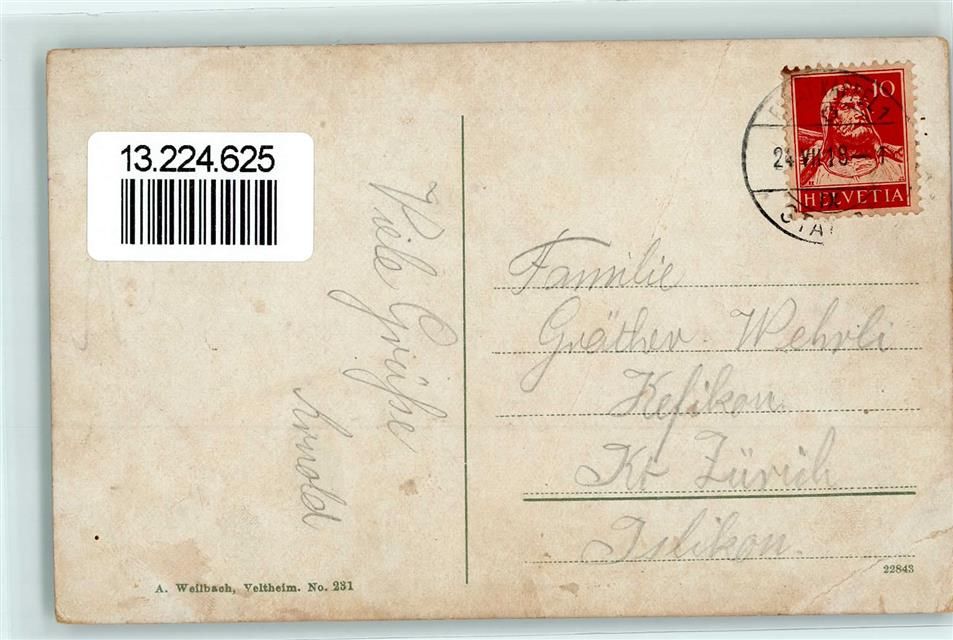 13.224.625
10
24.VII.18 – 1
HELVETIA
Viele Grüße
Arnold
Familie
Gräther-Wehrli
Kefikon
Kt Zürich
Islikon.
A. Weilbach, Veltheim. No. 231
22843